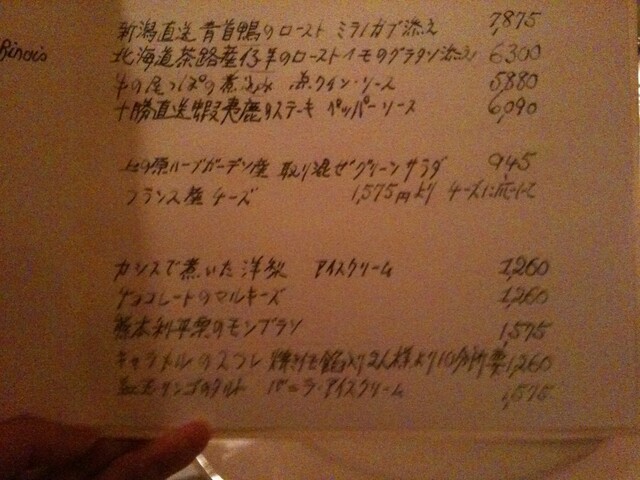 新潟直送 青首鴨のロースト ミラノカブ添え 7,875
北海道茶路産仔羊のロースト イモのグラタン添え 6300
牛の尾っぽの煮込み 赤ワイン・ソース 5880
十勝直送蝦夷鹿のステーキ ペッパーソース 6,090
ハーブガーデン産 取り混ぜグリーンサラダ 945
フランス産 チーズ 1,575円より チーズに応じて
カシスで煮いた洋梨 アイスクリーム 1,260
チョコレートのマルキーズ 1,260
熊本利平栗のモンブラン 1,575
キャラメルのスフレ 2人様より10分所要 1,260
紅玉リンゴのタルト バニラ・アイスクリーム 1,575